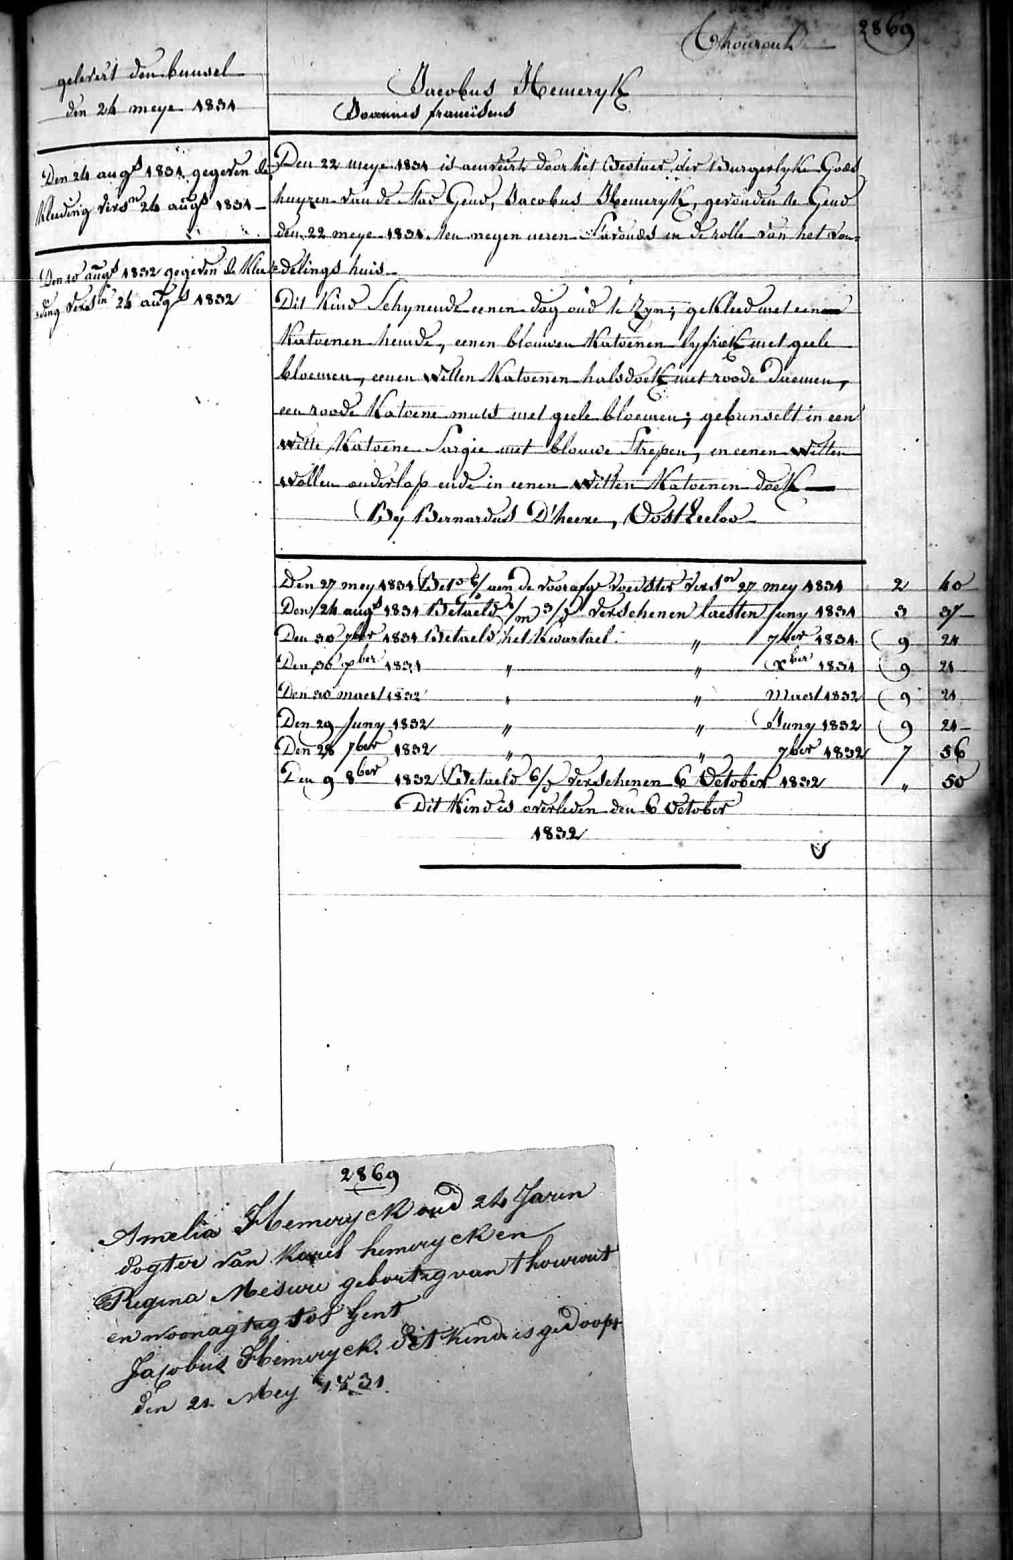 Thourout
2869
gelevert den bunsel
den 24 meye 1831
Jacobus Hemeryk
Joannes franciscus
Den 24 augs 1831 gegeven de
Kleeding versn 24 augs 1831
Den 10 augs 1832 gegeven de Klee=
ding versn 24 augs 1832
Den 22 meye 1831 is aenveirt door het Bestuer der Burgerlyke Gods
huyzen van de Stad Gend, Jacobus Hemeryk, gevonden te Gend
den 22 meye 1831 ten negen ueren S'avonds in de rolle van het von=
=delings huis
Dit Kind Schynende eenen dag oud te Zyn; gekleed met eenen
Katoenen hemde, eenen blouwen Katoenen lyfrok met geele
bloemen, eenen Witten Katoenen halsdoek met roode
een roode Katoene muts met geele bloemen; gebunselt in een
Witte Katoene Sargie met blouwe Strepen, en eenen Witten
Wollen onderlap ende in eenen Witten Katoenen doek
By Bernardus D'heere, Oost Eecloo
Den 27 mey 1831 Bet aen de voorafg voedster versn 27 mey 1831 2 40
Den 24 augs 1831 Betaeld /m 3/d verschenen laesten Juny 1831 3 37
Den 30 7ber 1831 Betaeld het Kwartael " 7ber 1831 9 21
Den 30 Xber 1831 " " Xber 1831 9 21
Den 30 maert 1832 " " Maert 1832 9 21
Den 29 Juny 1832 " " Juny 1832 9 21
Den 28 7ber 1832 " " 7ber 1832 7 56
Den 9 8ber 1832 Betaeld 6/d verschenen 6 October 1832 " 50
Dit Kind is overleden den 6 October
1832
2869
Amelia Hemeryck oud 24 Jaren
dogter van Karel hemeryck en
Regina Mesure gebortig van thourout
en woonagtig tot Gent
Jacobus Hemeryck dit Kind is gedoopt
den 21 Mey 1831